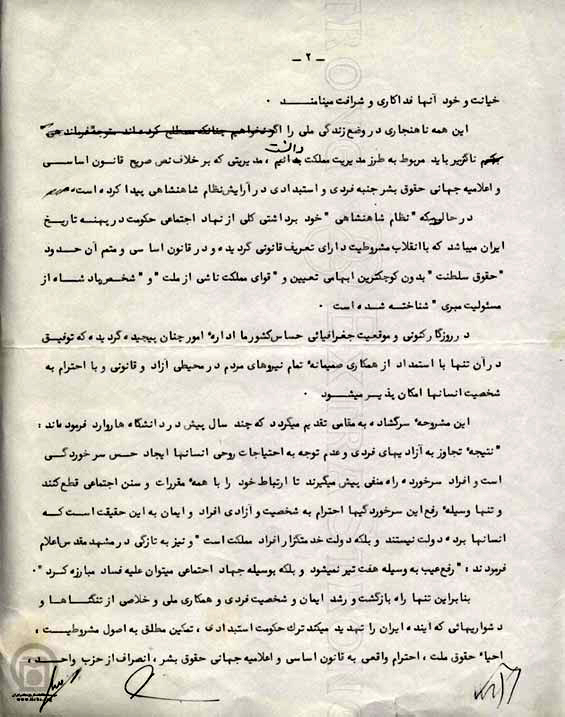 - ۲ -
خیانت و خود آنها فداکاری و شرافت مینامند .
این همه ناهنجاری در وضع زندگی ملی را
ناگزیر باید مربوط به طرز مدیریت مملکت دانست ، مدیریتی که بر خلاف نص صریح قانون اساسی
و اعلامیه جهانی حقوق بشر جنبه فردی و استبدادی در آرایش نظام شاهنشاهی پیدا کرده است
در حالیکه " نظام شاهنشاهی " خود برداشتی کلی از نهاد اجتماعی حکومت در پهنه تاریخ
ایران میباشد که با انقلاب مشروطیت دارای تعریف قانونی گردیده و در قانون اساسی و متمم آن حدود
" حقوق سلطنت " بدون کوچکترین ابهامی تعیین و " قوای مملکت ناشی از ملت " و " شخص پادشاه از
مسئولیت مبری " شناخته شده است .
در روزگار کنونی و موقعیت جغرافیائی حساس کشور ما اداره امور چنان پیچیده گردیده که توفیق
در آن تنها با استمداد از همکاری صمیمانه تمام نیروهای مردم در محیطی آزاد و قانونی و با احترام به
شخصیت انسانها امکان پذیر میشود .
این مشروحه سرگشاده به مقامی تقدیم میگردد که چند سال پیش در دانشگاه هاروارد فرموده‌اند :
" نتیجه تجاوز به آزادیهای فردی و عدم توجه به احتیاجات روحی انسانها ایجاد حس سرخوردگی
است و افراد سرخورده راه منفی پیش میگیرند تا ارتباط خود را با همه مقررات و سنن اجتماعی قطع کنند
و تنها وسیله رفع این سرخوردگیها احترام به شخصیت و آزادی افراد و ایمان به این حقیقت است که
انسانها برده دولت نیستند و بلکه دولت خدمتگزار افراد مملکت است " و نیز به تازگی در مشهد مقدس اعلام
فرمودند : " رفع عیب به وسیله هفت تیر نمیشود و بلکه بوسیله جهاد اجتماعی میتوان علیه فساد مبارزه کرد " .
بنابراین تنها راه بازگشت و رشد ایمان و شخصیت فردی و همکاری ملی و خلاصی از تنگناها و
دشواریهائی که آینده ایران را تهدید میکند ترک حکومت استبدادی ، تمکین مطلق به اصول مشروطیت ،
احیاء حقوق ملت ، احترام واقعی به قانون اساسی و اعلامیه جهانی حقوق بشر ، انصراف از حزب واحد ،